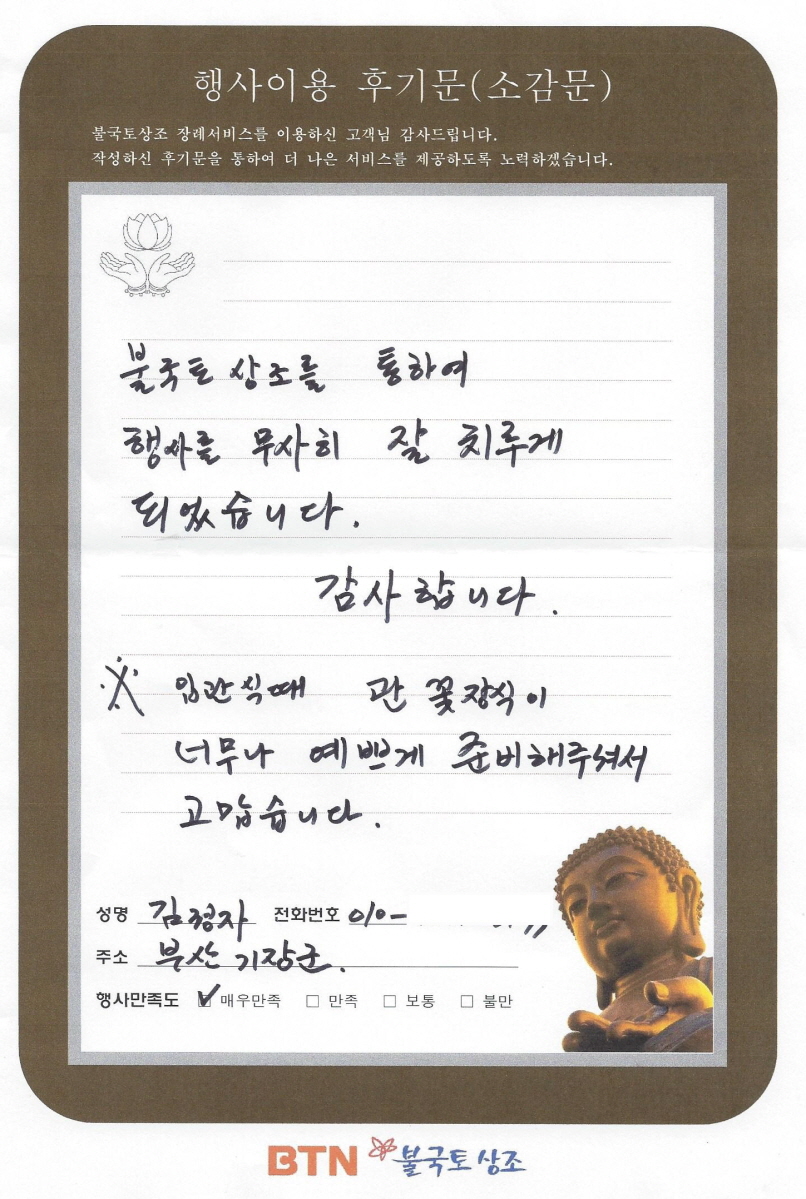 행사이용 후기문(소감문)
불국토상조 장례서비스를 이용하신 고객님 감사드립니다.
작성하신 후기문을 통하여 더 나은 서비스를 제공하도록 노력하겠습니다.
불국토 상조를 통하여
행사를 무사히 잘 치루게
되었습니다.
감사합니다.
※ 입관식때 관 꽃장식이
너무나 예쁘게 준비해주셔서
고맙습니다.
성명 김정자 전화번호 010-
주소 부산 기장군.
행사만족도 ☑ 매우만족 □ 만족 □ 보통 □ 불만
BTN 불국토상조